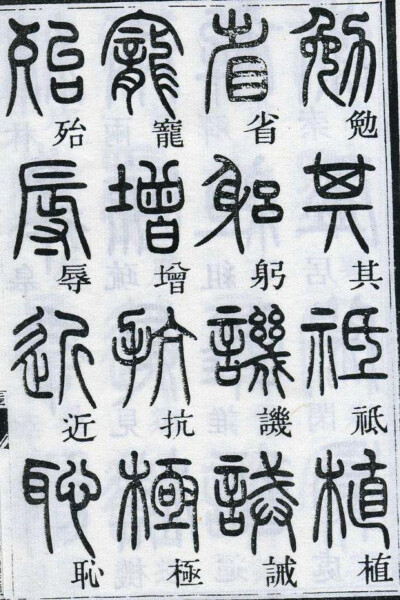 勉其祗植
省躬譏誡
寵增抗極
殆辱近恥